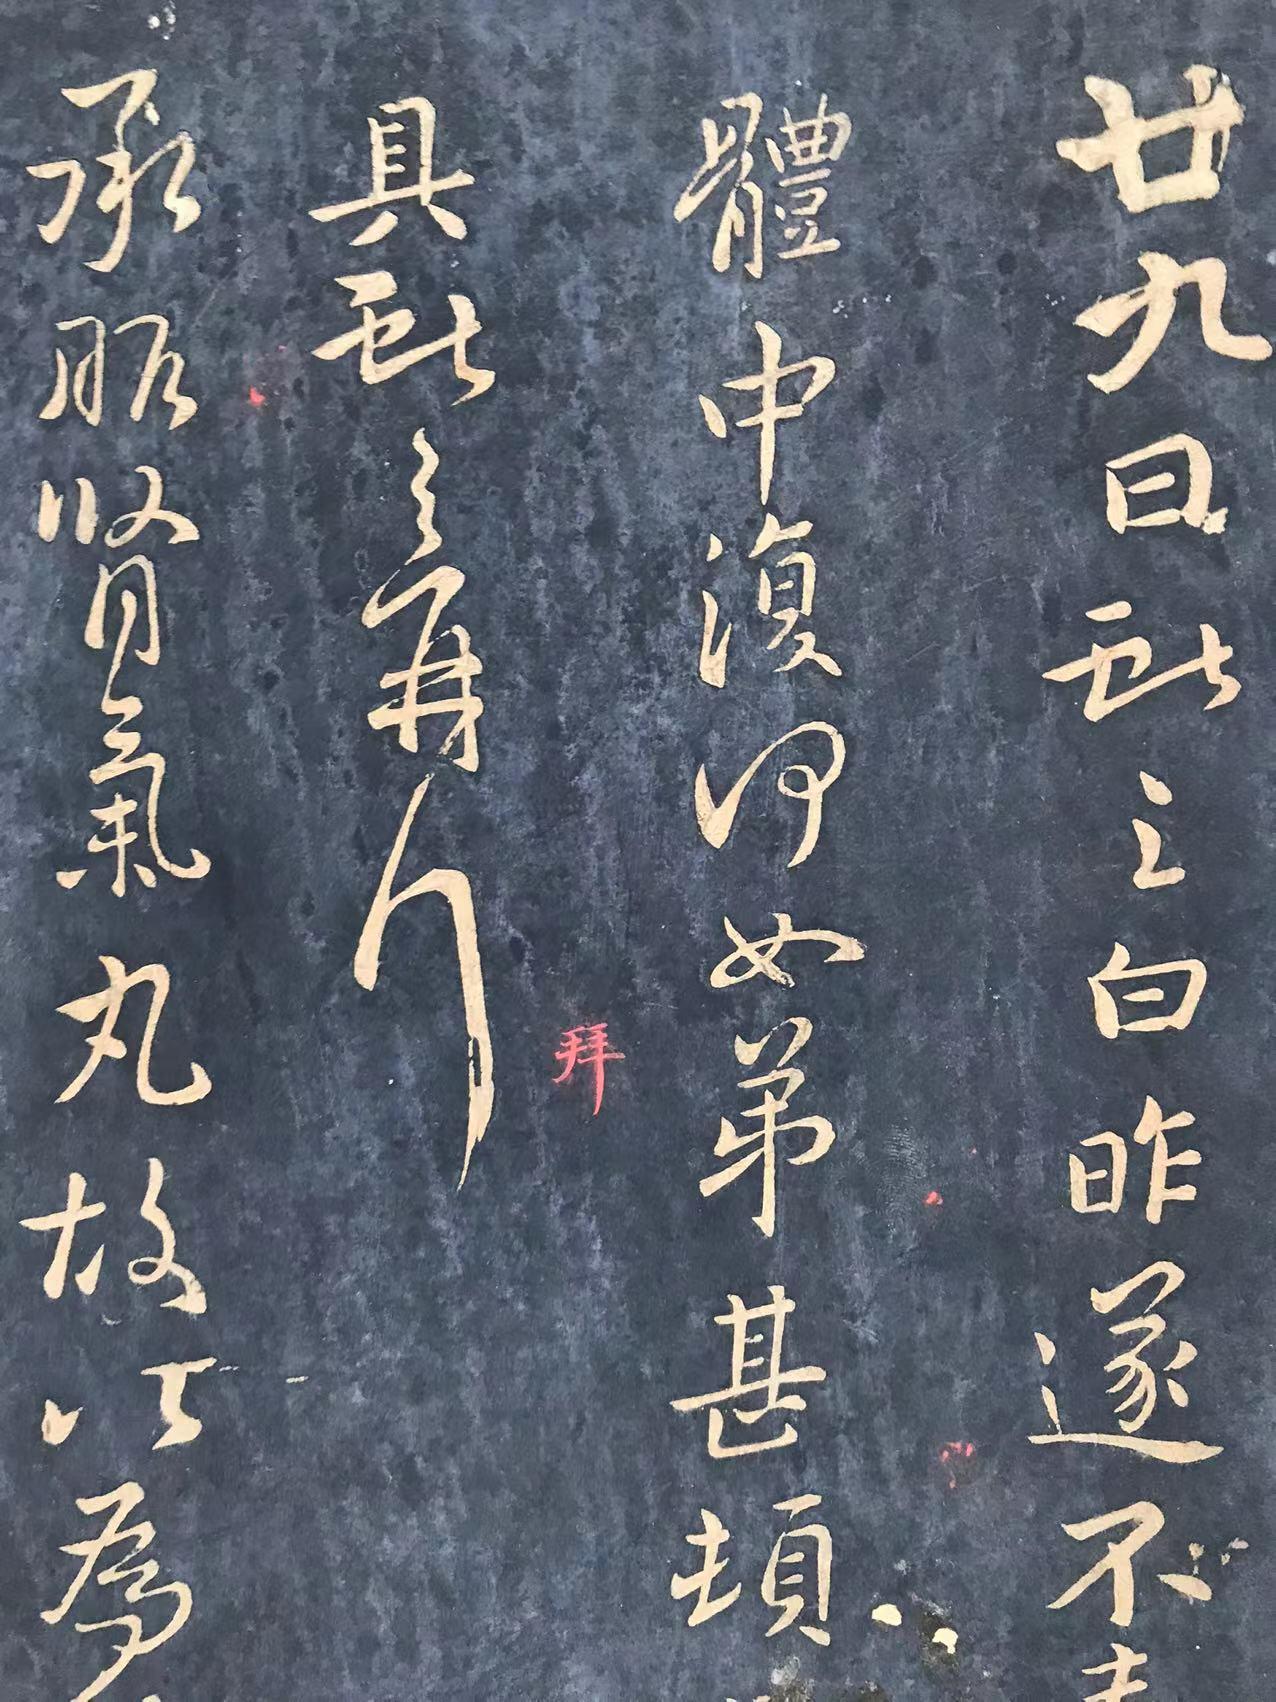 廿九日獻之白昨遂不
體中復何如弟甚頓
拜
具獻之再拜
承服腎氣丸故以為